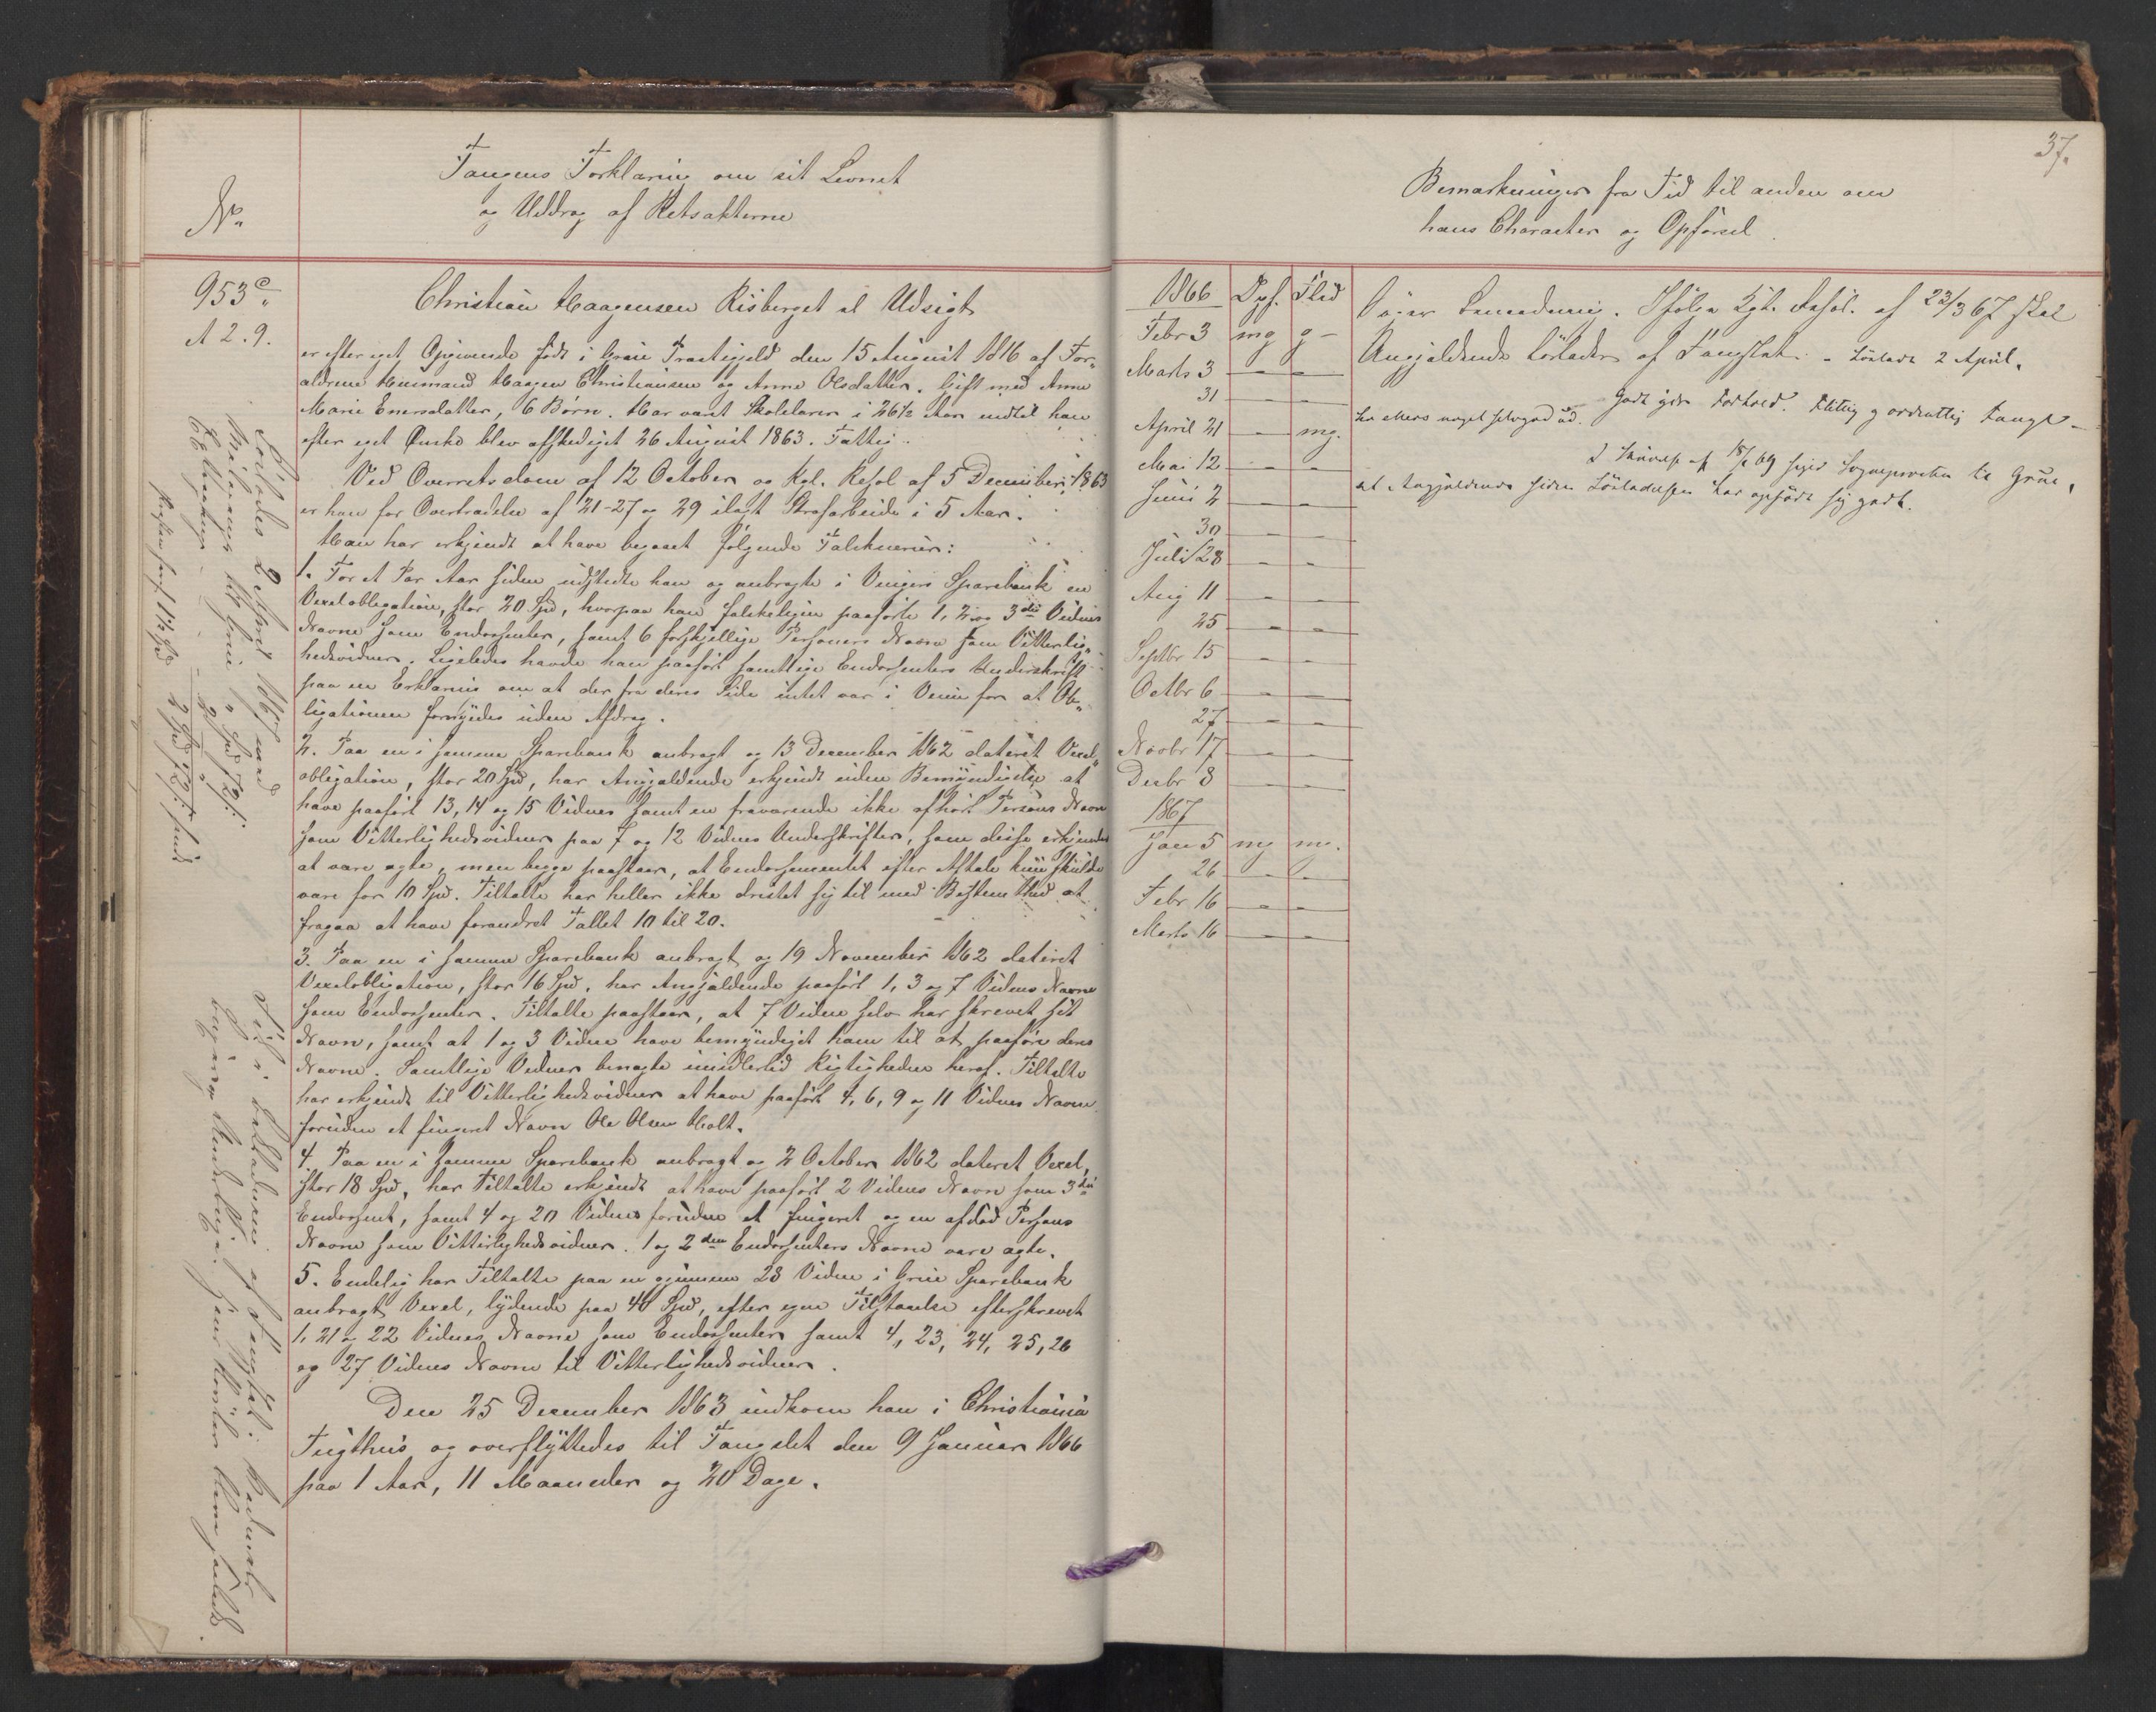 No.
Fangens Forklaring om sit Levnet
og Uddrag af Retsakterne
953 c.
A 2. 9.
Christian Haagensen Risberget al Udsigt
er efter eget Opgivende født i Grue Præstegjeld den 15 August 1816 af For„
ældrene Huusmand Haagen Christiansen og Anne Olsdatter. Gift med Anne
Marie Enersdatter, 6 Børn. Har været Skolelærer i 26½ Aar indtil han
efter eget Ønske blev afskediget 26 August 1863. Fattig.
Ved Overretsdom af 12 October og Kgl. Resol af 5 December 1863
er han for Overtrædelse af 21-27 og 29 ilagt Strafarbeide i 5 Aar.
Han har erkjendt at have begaaet følgende Falsknerier:
1. For et Par Aar siden udstedte han og anbragte i Vingers Sparebank en
Vexelobligation, stor 20 Spd, hvorpaa han falskeligen paaførte 1, 2 og 3die Vidnes
Navne som Endossenter, samt 6 forskjellige Personers Navne som Vitterlig„
hedsvidner. Ligeledes havde han paaført samtlige Endossenters Underskrift
paa en Erklæring om at der fra deres Side intet var i Veien for at Ob„
ligationen fornyedes uden Afdrag.
2. Paa en i samme Sparebank anbragt og 13 December 1862 dateret Vexel„
obligation, stor 20 Spd, har Angjældende erkjendt uden Bemyndigelse at
have paaført 13, 14 og 15 Vidnes samt en fraværende ikke afhørt Persons Navn
som Vitterlighedsvidner paa 7 og 12 Vidnes Underskrifter, som disse erkjender
at være ægte, men begge paastaar, at Endossementet efter Aftale kun skulde
være for 10 Spd. Tiltalte har heller ikke dristet sig til med Bestemthed at
fragaa at have forandret Tallet 10 til 20.
3. Paa en i samme Sparebank anbragt og 19 November 1862 dateret
Vexelobligation, stor 16 Spd, har Angjældende paaført 1, 3 og 7 Vidnes Navne
som Endossenter. Tiltalte paastaar, at 7 Vidne selv har skrevet sit
Navn, samt at 1 og 3 Vidne have bemyndiget ham til at paaføre deres
Navne. Samtlige Vidner benægte imidlertid Rigtigheden heraf. Tiltalte
har erkjendt til Vitterlighedsvidner at have paaført 4, 6, 9 og 11 Vidnes Navne
foruden et fingeret Navn Ole Olsen Holt.
4. Paa en i samme Sparebank anbragt og 2 October 1862 dateret Vexel,
stor 18 Spd, har Tiltalte erkjendt at have paaført 2 Vidnes Navn som 3die
Endossent, samt 4 og 20 Vidnes foruden et fingeret og en afdød Persons
Navne som Vitterlighedsvidner. 1 og 2den Endossenters Navne vare ægte.
5. Endelig har Tiltalte paa en gjennem 28 Vidne i Grue Sparebank
anbragt Vexel, lydende paa 40 Spd, efter egen Tilstaaelse efterskrevet
1, 21 og 22 Vidnes Navne som Endossenter samt 4, 23, 24, 25, 26
og 27 Vidnes Navne til Vitterlighedsvidner.
Den 25 December 1863 indkom han i Christiania
Tugthus og overflyttedes til Fangslet den 9 Januar 1866
paa 1 Aar, 11 Maaneder og 20 Dage.
Løslades 2 April 1867 med
2 Spd 72 ß
37.
Bemærkninger fra Tid til anden om
hans Character og Opførsel.
1866 Opf. Flid
Febr 3 mg g -
Marts 3 — —
31 — —
April 21 — mg.
Mai 12 — —
Juni 2 — —
30 — —
Juli 28 — —
Aug 11 — —
25 — —
Septbr 15 — —
Octbr 6 — —
27 — —
Novbr 17 — —
Decbr 8 — —
1867
Jan 5 mg mg.
26 — —
Febr 16 — —
Marts 16 — —
Ifølge Kgl. Resol. af 23/3 67 skal
Angjældende løslades af Fangslet. - Løsladt 2 April.
Godt Forhold. Flittig og ordentlig Fange -
I Skrivelse af 18/1 69 siger Sognepresten til Grue,
at Angjældende siden Løsladelsen har opført sig godt.